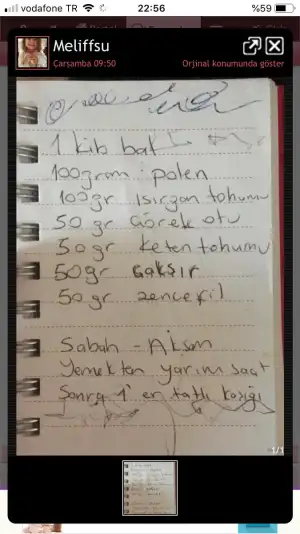 vodafone TR 22:56 %59
Meliffsu
Çarşamba 09:50 Orjinal konumunda göster
1 kib bal
100gram polen
100gr ısırgan tohumu
50 gr Çörek otu
50 gr keten tohumu
50gr çakşır
50 gr zencefil
Sabah - Akşam
Yemekten yarım saat
Sonra 1 er tatlı kaşığı
1/1